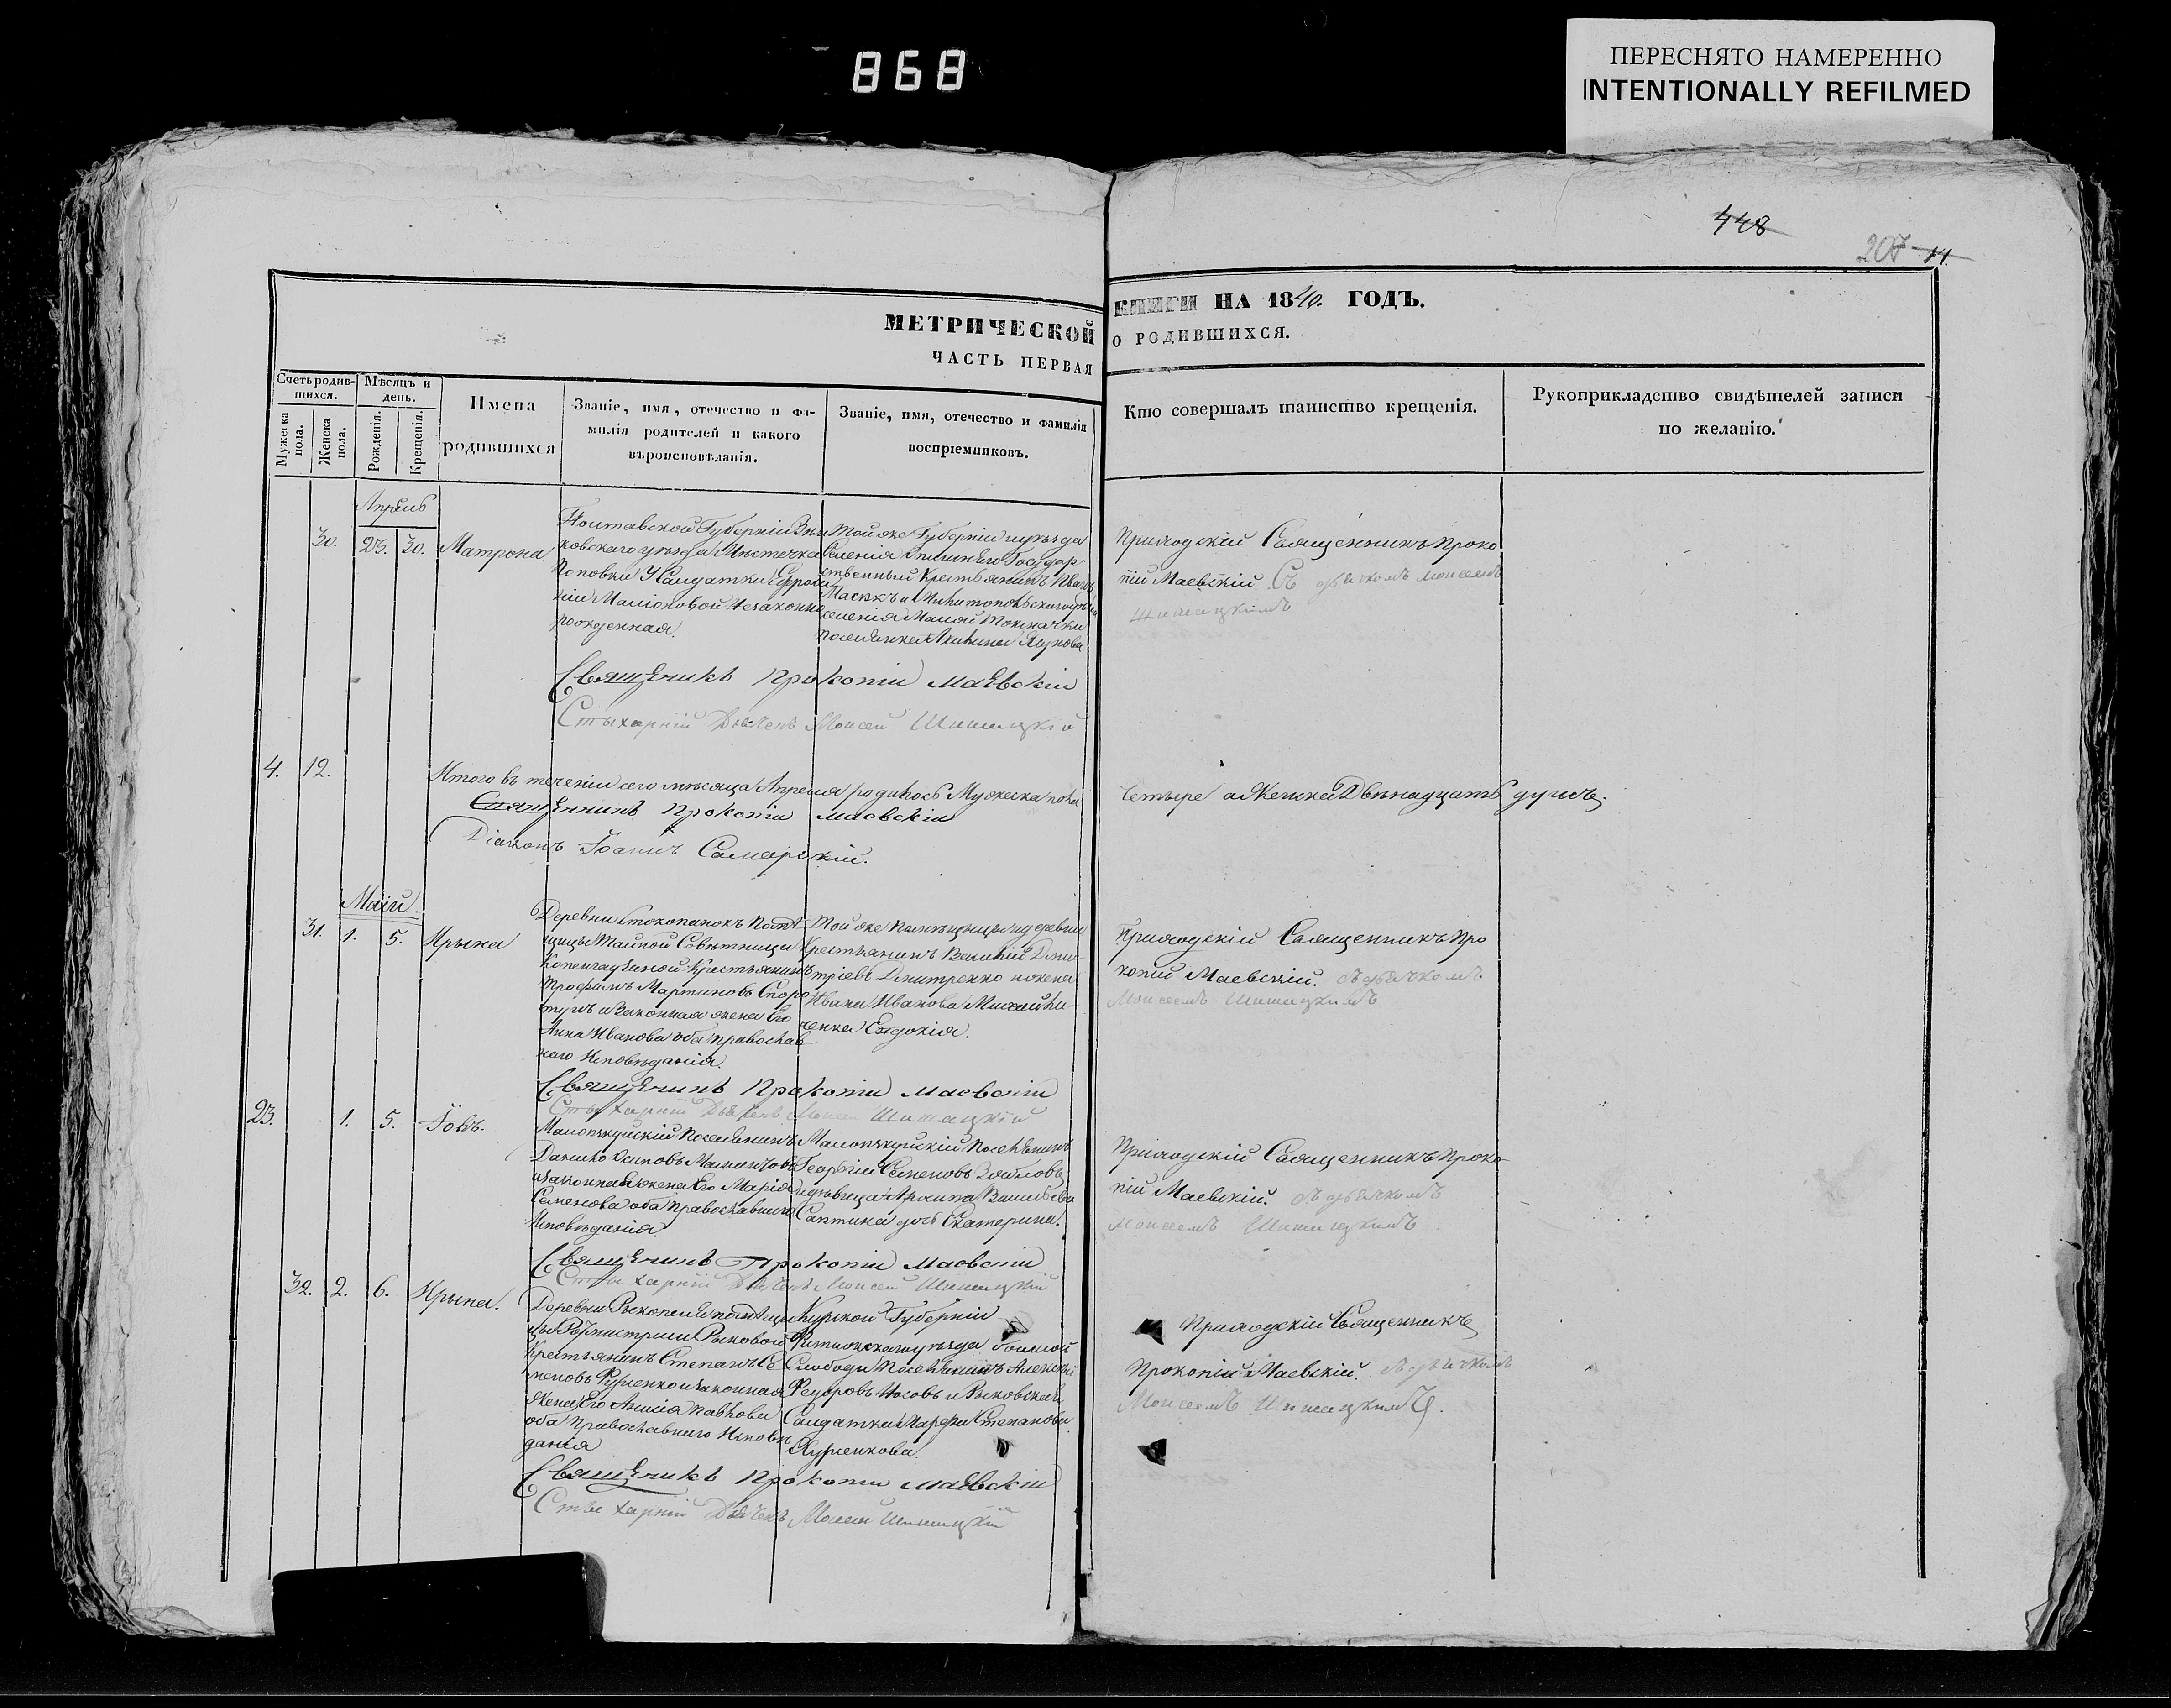 868
ПЕРЕСНЯТО НАМЕРЕННО
INTENTIONALLY REFILMED
448
207
МЕТРИЧЕСКОЙ КНИГИ НА 1840. ГОДЪ.
ЧАСТЬ ПЕРВАЯ О РОДИВШИХСЯ.
Счетъ родив-
шихся.
Мужеска
пола.
Женска
пола.
Мѣсяцъ и
день.
Рожденія.
Крещенія.
Имена
родившихся
Званіе, имя, отечество и фа-
милія родителей и какого
вѣроисповѣданія.
Званіе, имя, отечество и фамилія
воспріемниковъ.
Кто совершалъ таинство крещенія.
Рукоприкладство свидѣтелей записи
по желанію.
Апрѣль
30. 23. 30. Матрона.
Полтавской Губерніи Зѣнь
ковскаго уѣзда Мѣстечка
Поповки У Салдатки
незаконно
рожденная.
Той же Губерніи и уѣзда
Селенія Государ-
ственный Крестьянинъ Иванъ
и
селенія Малой Токмачки
поселянка
Приходскій Священникъ Проко
пій Маевскій Съ дьячкомъ Моисеемъ
Шишацкимъ
Священикъ Прокопій Маевскій
Стыхарній Дьячекъ Моисей Шишацкій
4. 12. Итого въ теченіи сего мѣсяца Апреля родилось Мужеска пола
Четыре а Женска Двѣнадцать душъ.
Священникъ Прокопій Маевскій
Діаконъ Іоаннъ Самарскій.
Маій
31. 1. 5. Ирына
Деревни Помѣ-
щицы Тайной Совѣтницы
Крестьянинъ
Трофимъ Мартиновъ
и Законная жена Его
Анна Иванова оба православ-
наго Исповѣданія.
Той же Помѣщицы и деревни
Крестьянинъ Василій Дми-
тріевъ Дмитренко и жена
Ивана Иванова Михайли-
ченка Евдокія.
Приходскій Священникъ Про
копій Маевскій. Съ дьячкомъ
Моисеемъ Шишацкимъ
Священикъ Прокопій Маевскій
Стыхарній Дьячекъ Моисей Шишацкій
23. 1. 5. Іовъ.
Поселянинъ
Данило Осиповъ
и законная жена Его Марія
Семенова оба Православнаго
Исповѣданія.
Поселянинъ
Георгій Семеновъ
и дѣвица Архипа Васильева
дочь Екатерина.
Приходскій Священникъ Проко-
пій Маевскій. Съ дьячкомъ
Моисеемъ Шишацкимъ.
Священикъ Прокопій Маевскій
Стыхарній Дьячекъ Моисей Шишацкій
32. 2. 6. Ирына.
Деревни помѣщи
цы Рыковой
Крестьянинъ Степанъ Се
меновъ и законная
Жена Его Павлова
оба Православнаго Исповѣ
данія
Курской Губерніи
уѣзда
Слободы Поселянинъ Алексей
Федоровъ Носовъ и Рыковская
Салдатка Марфа Степанова
Приходскій Священникъ
Прокопій Маевскій. Съ дьячкомъ
Моисеемъ Шишацкимъ.
Священикъ Прокопій Маевскій
Стыхарній Дьячекъ Моисей Шишацкій